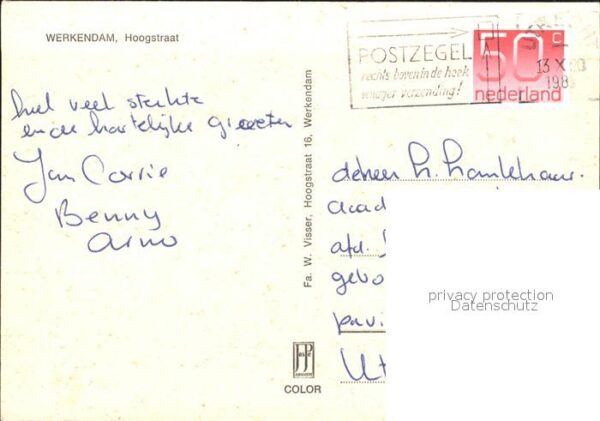 WERKENDAM, Hoogstraat
POSTZEGEL
rechts boven in de hoek
vlugger verzending!
50 c
nederland
13 X
198
heel veel sterkte
en de hartelijke groeten
Jan Corrie
Benny
Arno
Fa. W. Visser, Hoogstraat 16, Werkendam
de heer h.
acad
afd.
gebo
pavi
Ut
privacy protection
Datenschutz
JosPe
COLOR